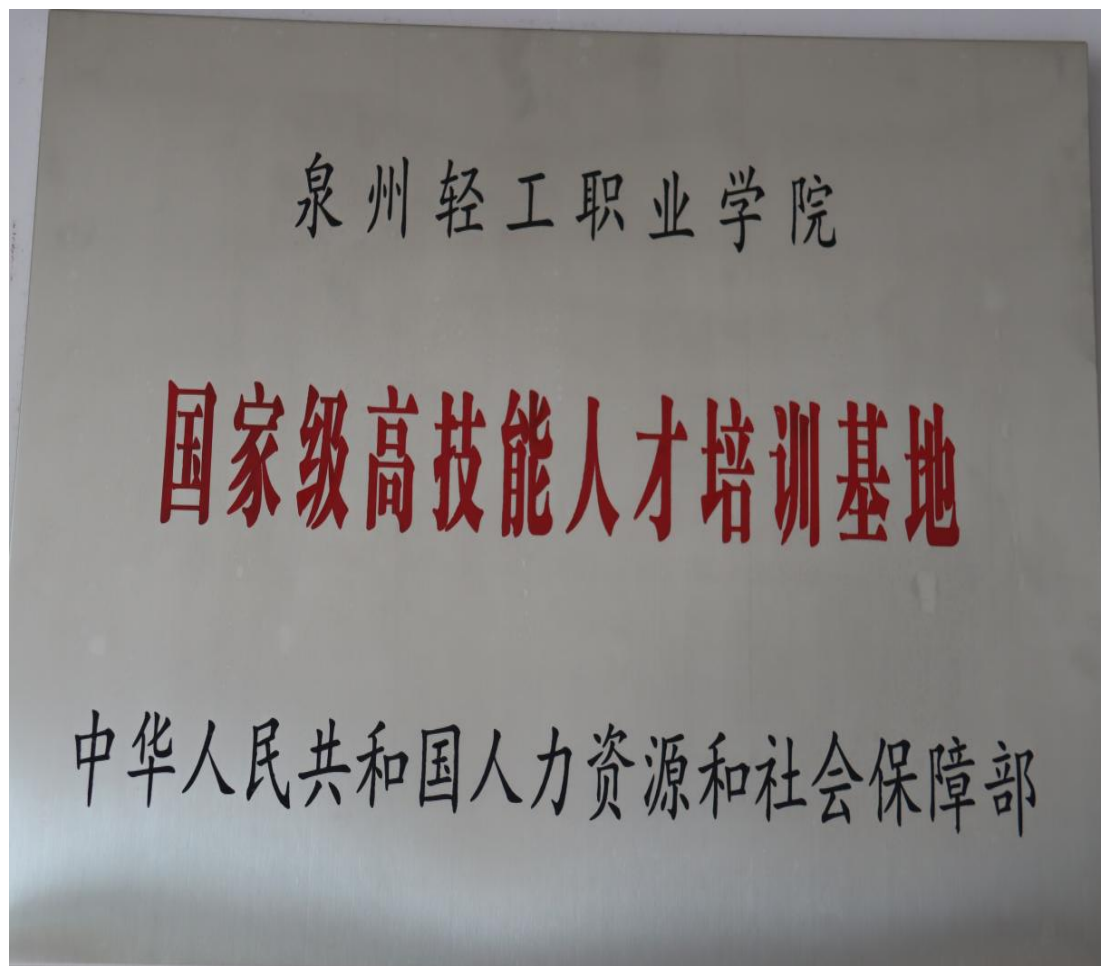 泉州轻工职业学院
国家级高技能人才培训基地
中华人民共和国人力资源和社会保障部